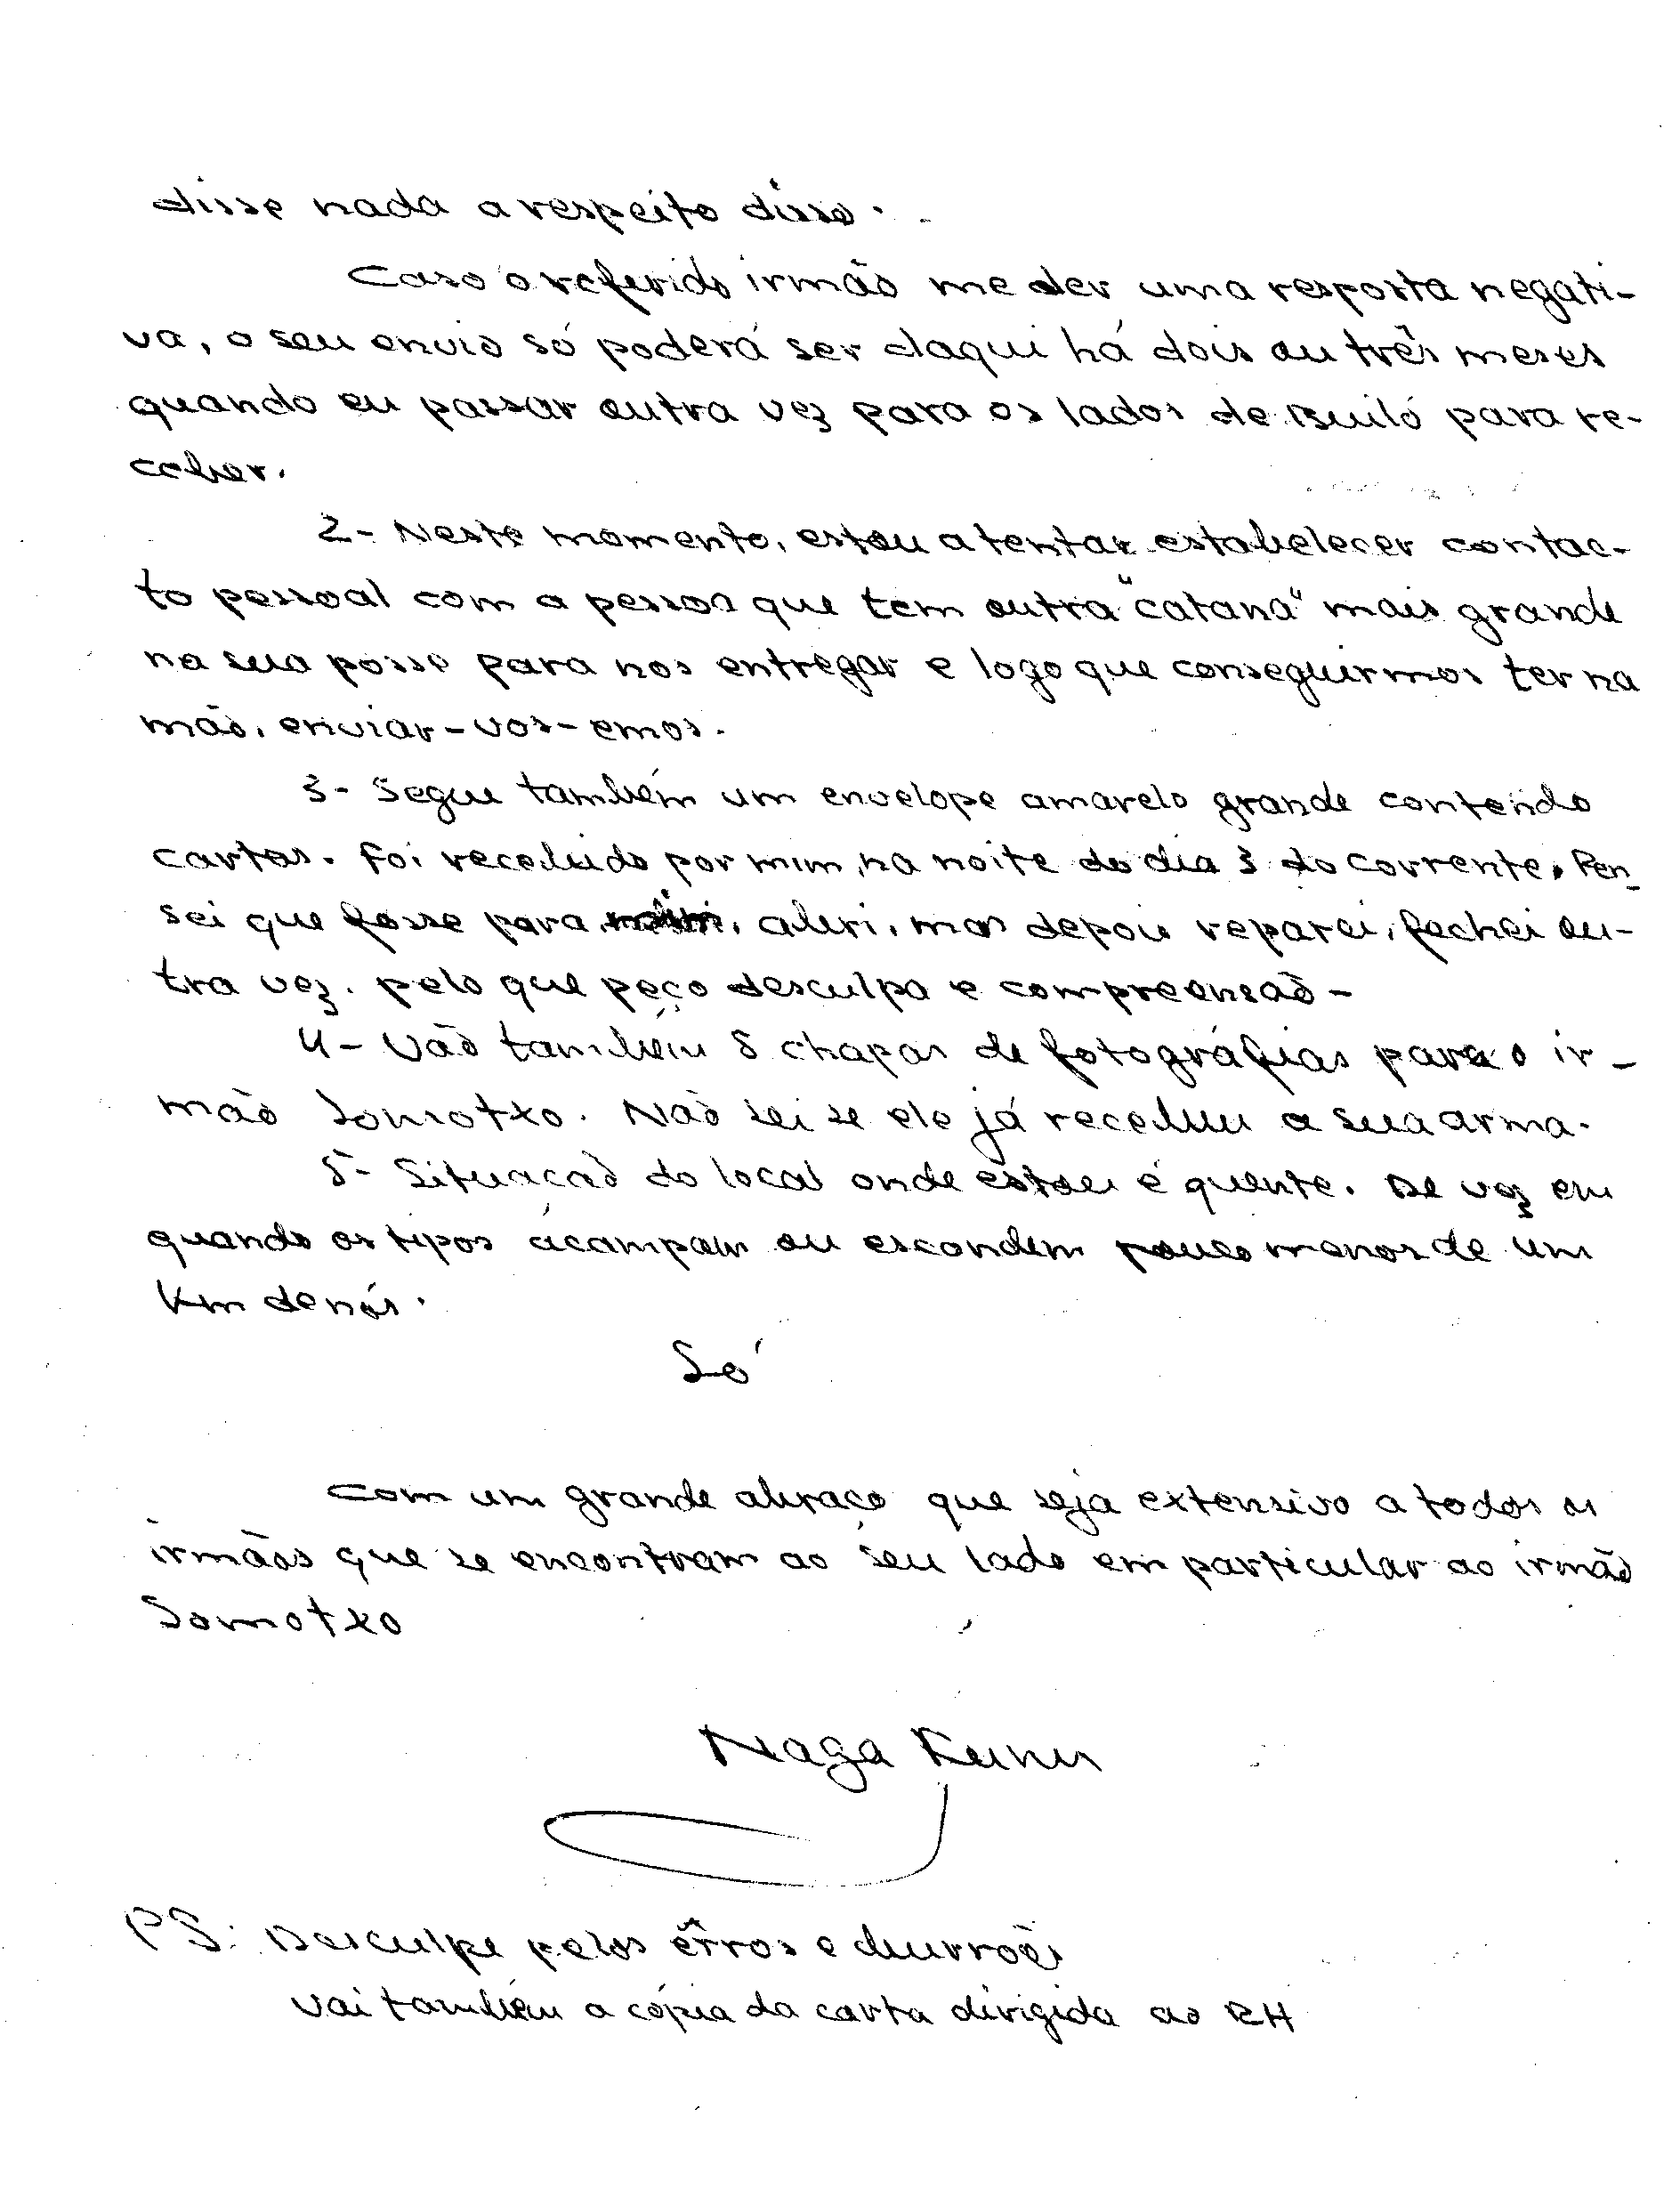 disse nada a respeito disso.
Caso o referido irmão me der uma resposta negati-
va, o seu envio só poderá ser daqui há dois ou três meses
quando eu passar outra vez para os lados de Builó para re-
ceber.
2- Neste momento, estou a tentar estabelecer contac-
to pessoal com a pessoa que tem outra "catana" mais grande
na sua posse para nos entregar e logo que conseguirmos ter na
mão, enviar-vos-emos.
3- Segue também um envelope amarelo grande contendo
cartas. Foi recebido por mim, na noite do dia 3 do corrente. Pen-
sei que fosse para mim, abri, mas depois reparei, fechei ou-
tra vez. pelo que peço desculpa e compreensão-
4- Vão também 5 chapas de fotográfias para o ir-
mão Somotxo. Não sei se ele já recebeu a sua arma.
5- Situação do local onde estou é quente. De vez em
quando os tipos acampam ou escondem pouco menos de um
Km de nós.
Só
Com um grande abraço que seja extensivo a todos os
irmãos que se encontram ao seu lado em particular ao irmão
Somotxo
Naga
PS: Desculpe pelos êrros e burrões
Vai também a cópia da carta dirigida ao RH